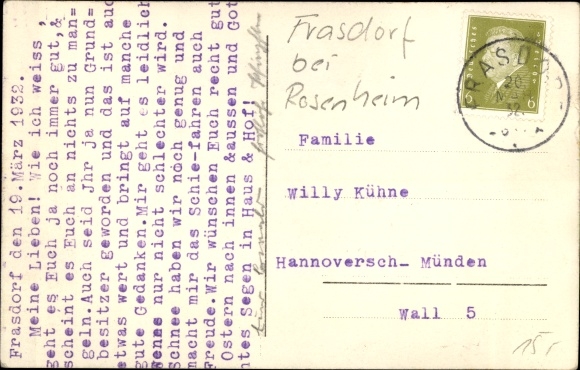 Frasdorf den 19.März 1932.
Meine Lieben! Wie ich weiss ,
geht es Euch ja noch immer gut,&
scheint es Euch an nichts zu man=
geln.Auch seid Jhr ja nun Grund=
besitzer geworden und das ist auch
etwas wert und bringt auf manche
gute Gedanken.Mir geht es leidlich
Wenns nur nicht schlechter wird.
Schnee haben wir noch genug und
macht mir das Schie-fahren auch
Freude.Wir wünschen Euch recht gut
Ostern nach innen &aussen und Got
tes Segen in Haus & Hof!
Frasdorf
bei
Rosenheim
RASD
20
32
6 6
Familie
Willy Kühne
Hannoversch- Münden
Wall 5
15,-